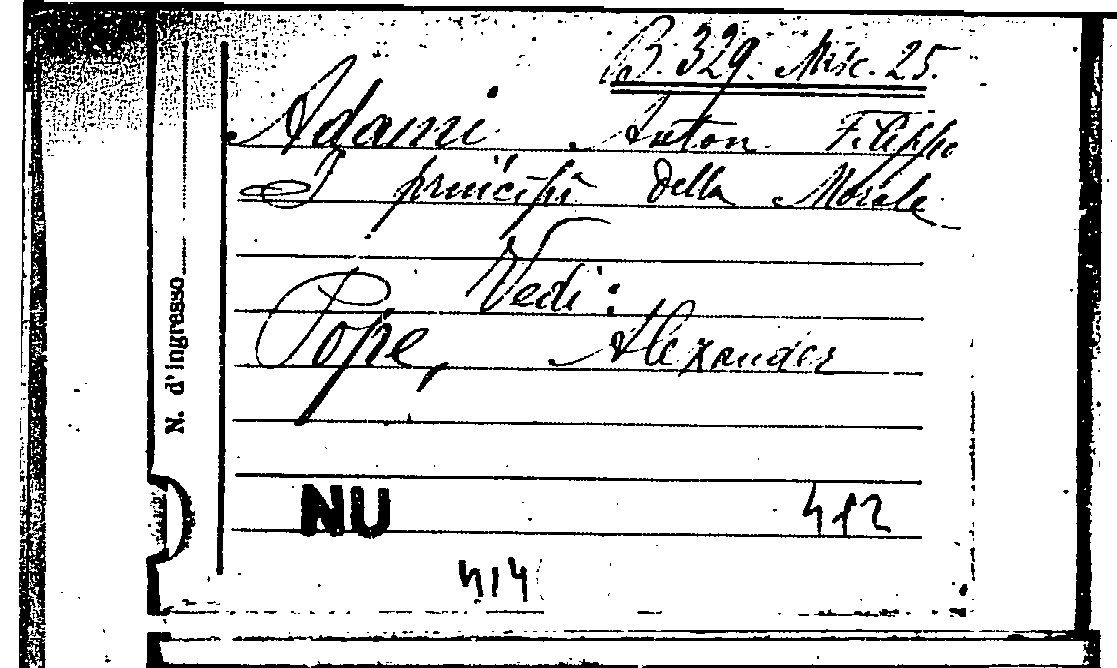 B. 329. Misc. 25.
Adami Anton Filippo
I principi della Morale
Vedi:
Pope, Alexander
N. d'ingresso
NU
412
414